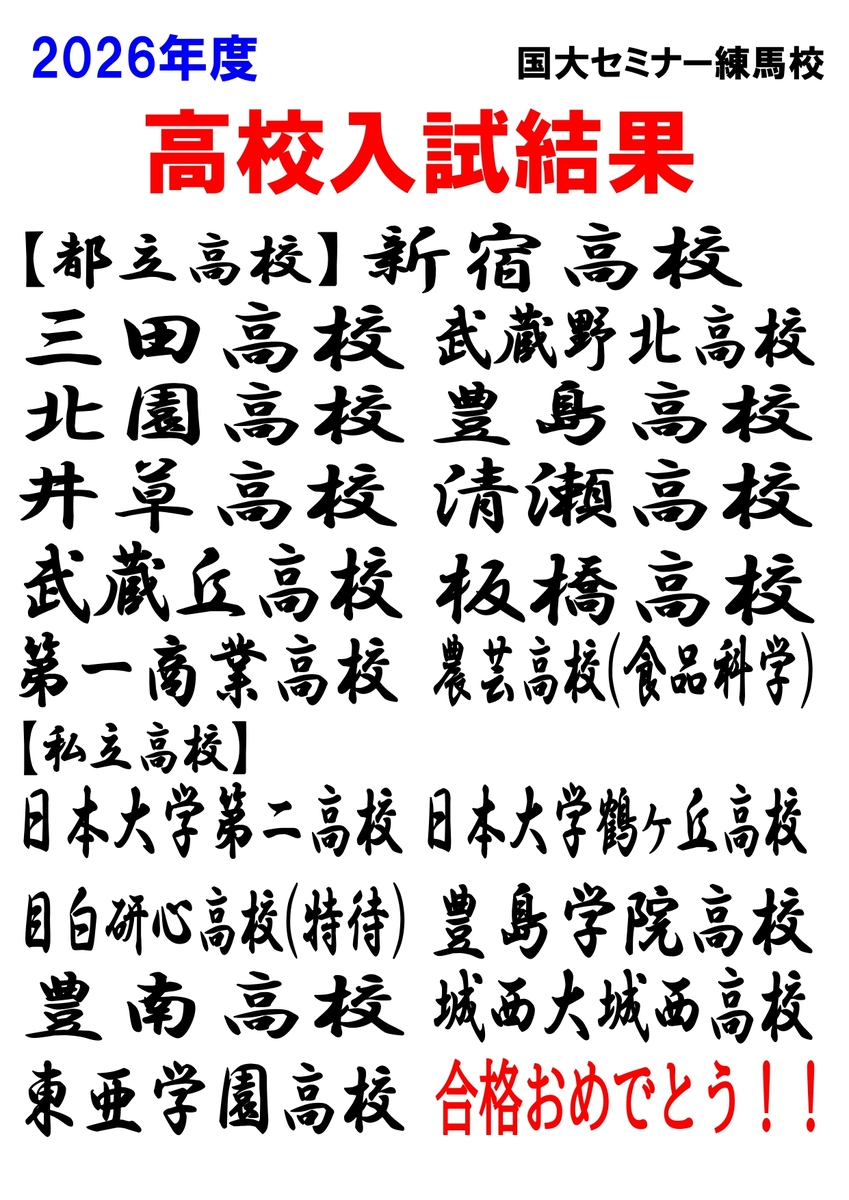 2026年度 国大セミナー練馬校
高校入試結果
【都立高校】 新宿高校
三田高校 武蔵野北高校
北園高校 豊島高校
井草高校 清瀬高校
武蔵丘高校 板橋高校
第一商業高校 農芸高校(食品科学)
【私立高校】
日本大学第二高校 日本大学鶴ヶ丘高校
目白研心高校(特待) 豊島学院高校
豊南高校 城西大城西高校
東亜学園高校 合格おめでとう！！